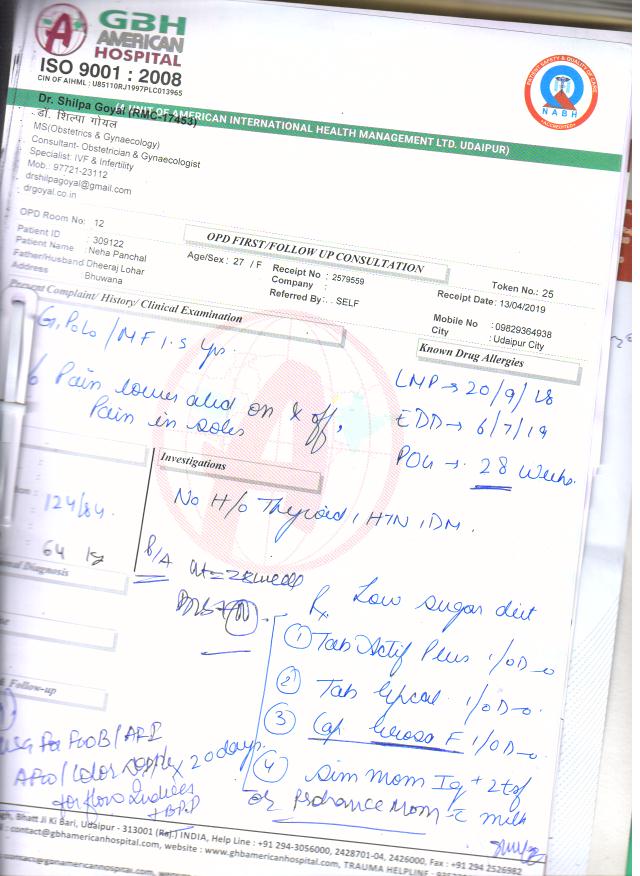 GBH
AMERICAN
HOSPITAL
ISO 9001 : 2008
CIN OF AIHML : U85110RJ1997PLC013965
PATIENT SAFETY & QUALITY OF CARE
NABH
ACCREDITED
(A UNIT OF AMERICAN INTERNATIONAL HEALTH MANAGEMENT LTD. UDAIPUR)
Dr. Shilpa Goyal (RMC-17453)
डॉ. शिल्पा गोयल
MS(Obstetrics & Gynaecology)
Consultant- Obstetrician & Gynaecologist
Specialist: IVF & Infertility
Mob.: 97721-23112
drshilpagoyal@gmail.com
drgoyal.co.in
OPD Room No: 12
OPD FIRST/FOLLOW UP CONSULTATION
Patient ID : 309122
Patient Name : Neha Panchal
Father/Husband : Dheeraj Lohar
Address : Bhuwana
Age/Sex : 27 / F
Receipt No : 2579559
Company :
Referred By : . SELF
Token No.: 25
Receipt Date: 13/04/2019
Mobile No : 09829364938
City : Udaipur City
Present Complaint/ History/ Clinical Examination
Known Drug Allergies
G1P0L0 / MF 1.5 yrs.
LMP → 20/9/18
Pain lower abd on & off,
EDD → 6/7/19
Pain in soles
POG → 28 weeks.
Investigations
No H/o Thyroid, HTN, DM.
124/84
64 kg
P/A ut = 28 week
onal Diagnosis
Rx Low sugar diet
① Tab Actif Plus 1/OD
② Tab 1/OD
③ Cap F 1/OD
& Follow-up
20 days.
④ Sim Mom IQ + 2tsf
or Prohance Mom c milk
for flow Indices
gh, Bhatt Ji Ki Bari, Udaipur - 313001 (Raj.) INDIA, Help Line : +91 294-3056000, 2428701-04, 2426000, Fax : +91 294 2526982
: contact@gbhamericanhospital.com, website : www.gbhamericanhospital.com, TRAUMA HELPLINE